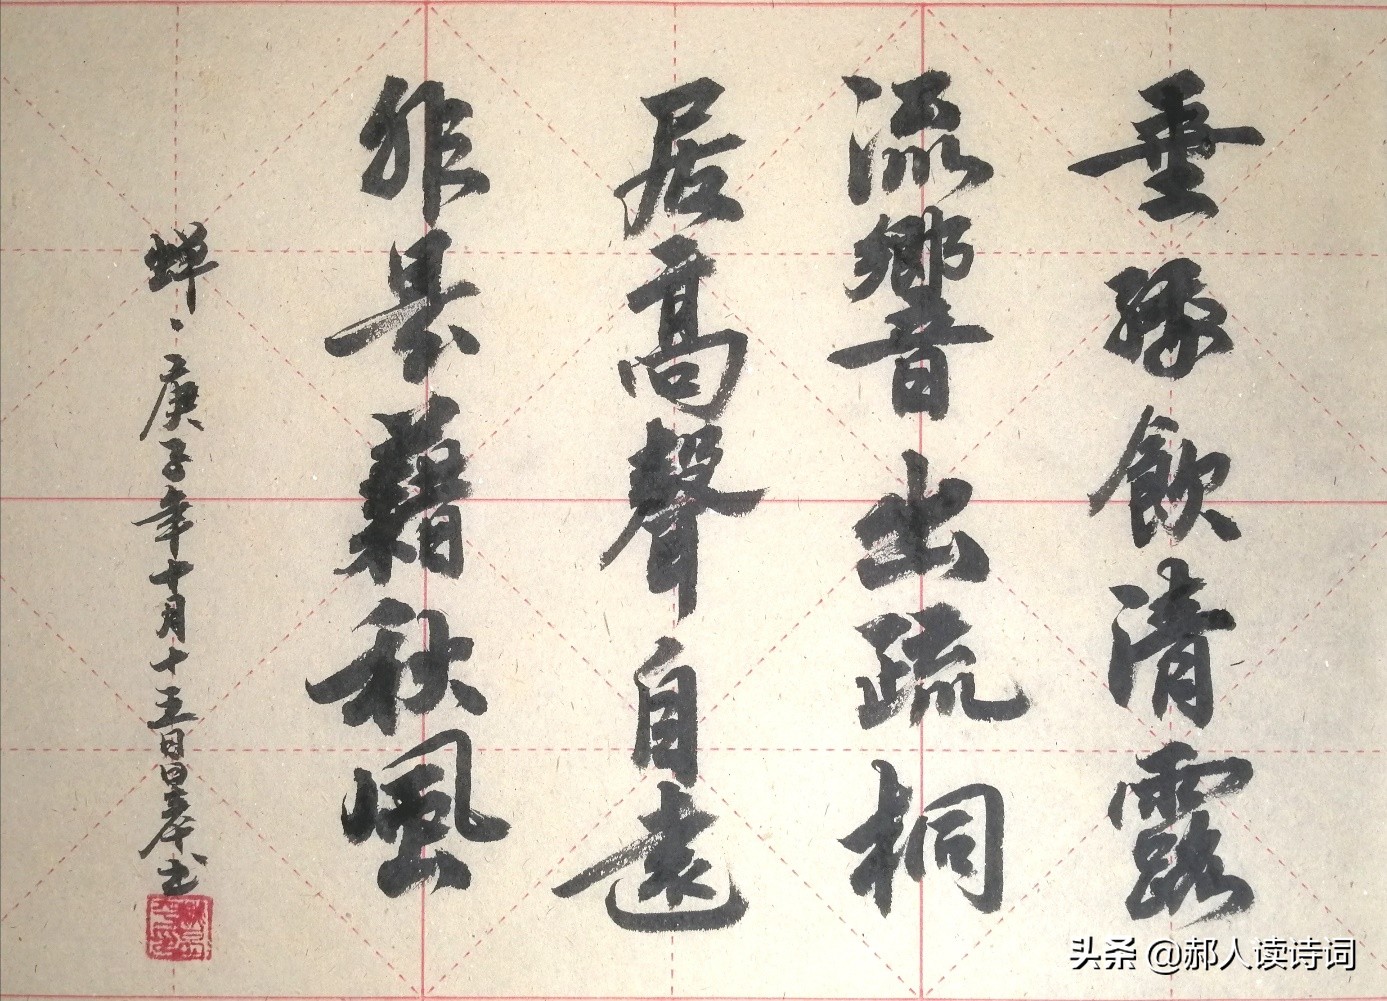 垂緌飲清露
流響出疏桐
居高聲自遠
非是藉秋風
蝉、庚子年十月十五日 书
头条 @郝人读诗词